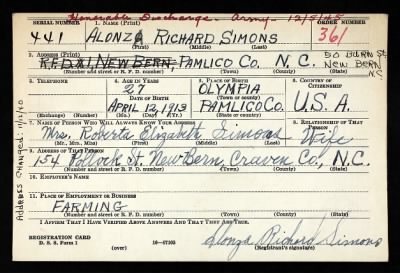 Honorable Discharge - Army - 12/5/45
SERIAL NUMBER 1. NAME (Print) ORDER NUMBER
441 ALONZA RICHARD SIMONS 361
(First) (Middle) (Last)
2. ADDRESS (Print) 50 BURN St.
R.F.D. #1, NEW BERN, PAMLICO CO. N.C. NEW BERN
N.C.
(Number and street or R. F. D. number) (Town) (County) (State)
3. TELEPHONE 4. AGE IN YEARS 5. PLACE OF BIRTH 6. COUNTRY OF CITIZENSHIP
27 OLYMPIA
DATE OF BIRTH (Town or county)
APRIL 12, 1913 PAMLICO CO. U.S.A.
(Exchange) (Number) (Mo.) (Day) (Yr.) (State or country)
7. NAME OF PERSON WHO WILL ALWAYS KNOW YOUR ADDRESS 8. RELATIONSHIP OF THAT PERSON
Mrs. Roberta Elizabeth Simons Wife
(Mr., Mrs., Miss) (First) (Middle) (Last)
9. ADDRESS OF THAT PERSON
154 Pollock St. New Bern, Craven Co., N.C.
(Number and street or R. F. D. number) (Town) (County) (State)
10. EMPLOYER'S NAME
11. PLACE OF EMPLOYMENT OR BUSINESS
FARMING
(Number and street or R. F. D. number) (Town) (County) (State)
I AFFIRM THAT I HAVE VERIFIED ABOVE ANSWERS AND THAT THEY ARE TRUE.
REGISTRATION CARD
D. S. S. Form 1 (over) 16—17105 Alonza Richard Simons
(Registrant's signature)
Address Changed - 11/2/40